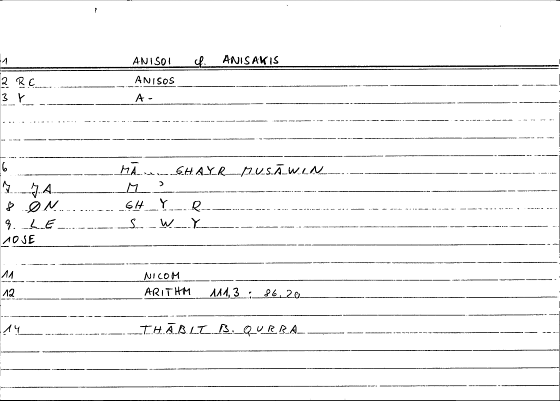 1 ANISOI cf. ANISAKIS
2 RE ANISOS
3 Y A-
6 MĀ... GHAYR MUSĀWIN
7 JA M ʾ
8 ØN GH Y R
9 LE S W Y
10 SE
11 NICOM
12 ARITHM 111,3 : 86,20
14 THĀBIT B. QURRA